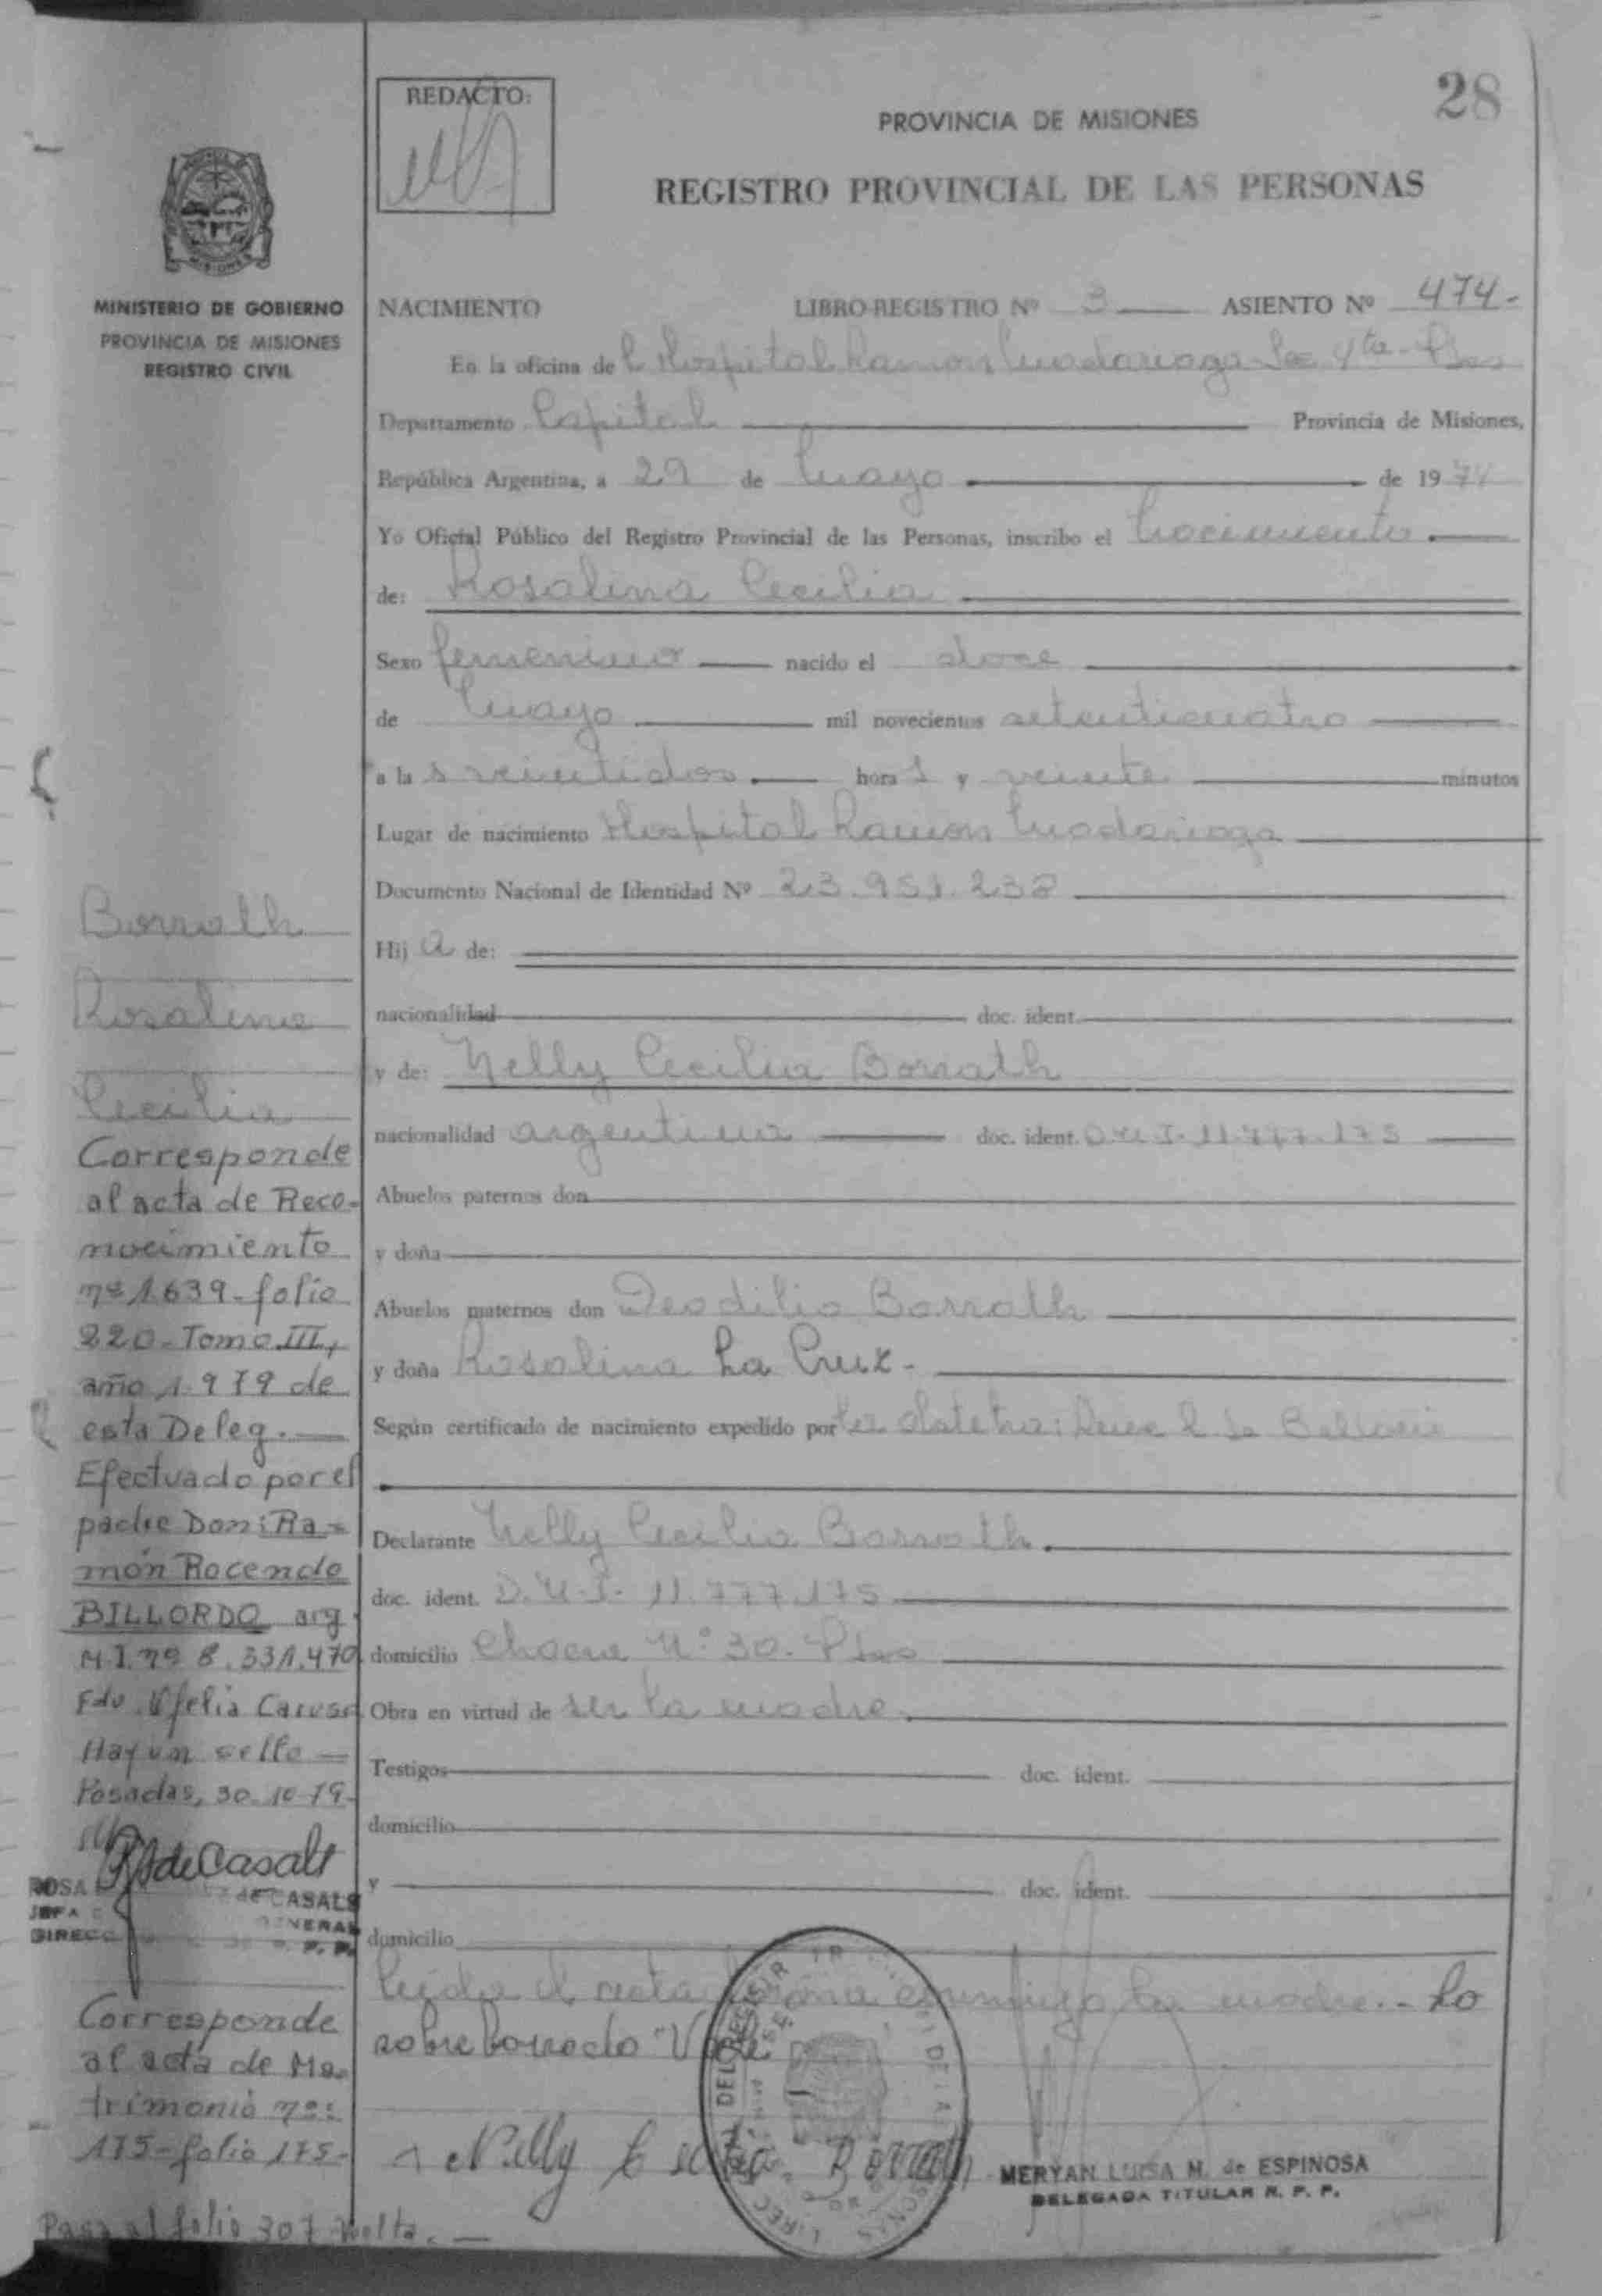 28
REDACTO:
PROVINCIA DE MISIONES
REGISTRO PROVINCIAL DE LAS PERSONAS
MINISTERIO DE GOBIERNO
PROVINCIA DE MISIONES
REGISTRO CIVIL
NACIMIENTO LIBRO-REGISTRO Nº 3 ASIENTO Nº 474.-
En la oficina de Hospital Ramon Madariaga Sec 4ta - Pdas
Departamento Capital Provincia de Misiones,
República Argentina, a 29 de Mayo de 1974
Yo Oficial Público del Registro Provincial de las Personas, inscribo el Nacimiento
de: Rosalina Cecilia
Sexo femenino nacido el doce
de Mayo mil novecientos setenticuatro
a la s veintidos hora s y veinte minutos
Lugar de nacimiento Hospital Ramon Madariaga
Documento Nacional de Identidad Nº 23.951.238
Hij a de:
nacionalidad doc. ident.
y de: Nelly Cecilia Borrath
nacionalidad argentina doc. ident. D.N.I. 11.777.175
Abuelos paternos don
y doña
Abuelos maternos don Deodilio Borrath
y doña Rosalina La Cruz.-
Según certificado de nacimiento expedido por la Obstetra:
Declarante Nelly Cecilia Borrath.
doc. ident. D.N.I. 11.777.175
domicilio Chacra Nº 30. Pdas
Obra en virtud de ser la madre.
Testigos doc. ident.
domicilio
y doc. ident.
domicilio
Leida el acta firma conmigo la madre.- Lo
sobre borrado "Vale.
Nelly Cecilia Borrath
MERYAN LUISA M. de ESPINOSA
DELEGADA TITULAR R. P. P.
Borrath
Rosalina
Cecilia
Corresponde
al acta de Reco-
nocimiento
nº 1639 - folio
220 - Tomo III,
año 1979 de
esta Deleg.
Efectuado por el
padre Don: Ra-
món Rocendo
BILLORDO arg.
M.I. nº 8.331.470
Fdo. Ofelia Caruso
Hay un sello
Posadas, 30-10-79.
R A de Casals
ROSA de CASALS
JEFA GENERAL
DIRECC R. P. P.
Corresponde
al acta de Ma-
trimonio nº:
175 - folio 175-
Pasa al folio 307 vuelta.